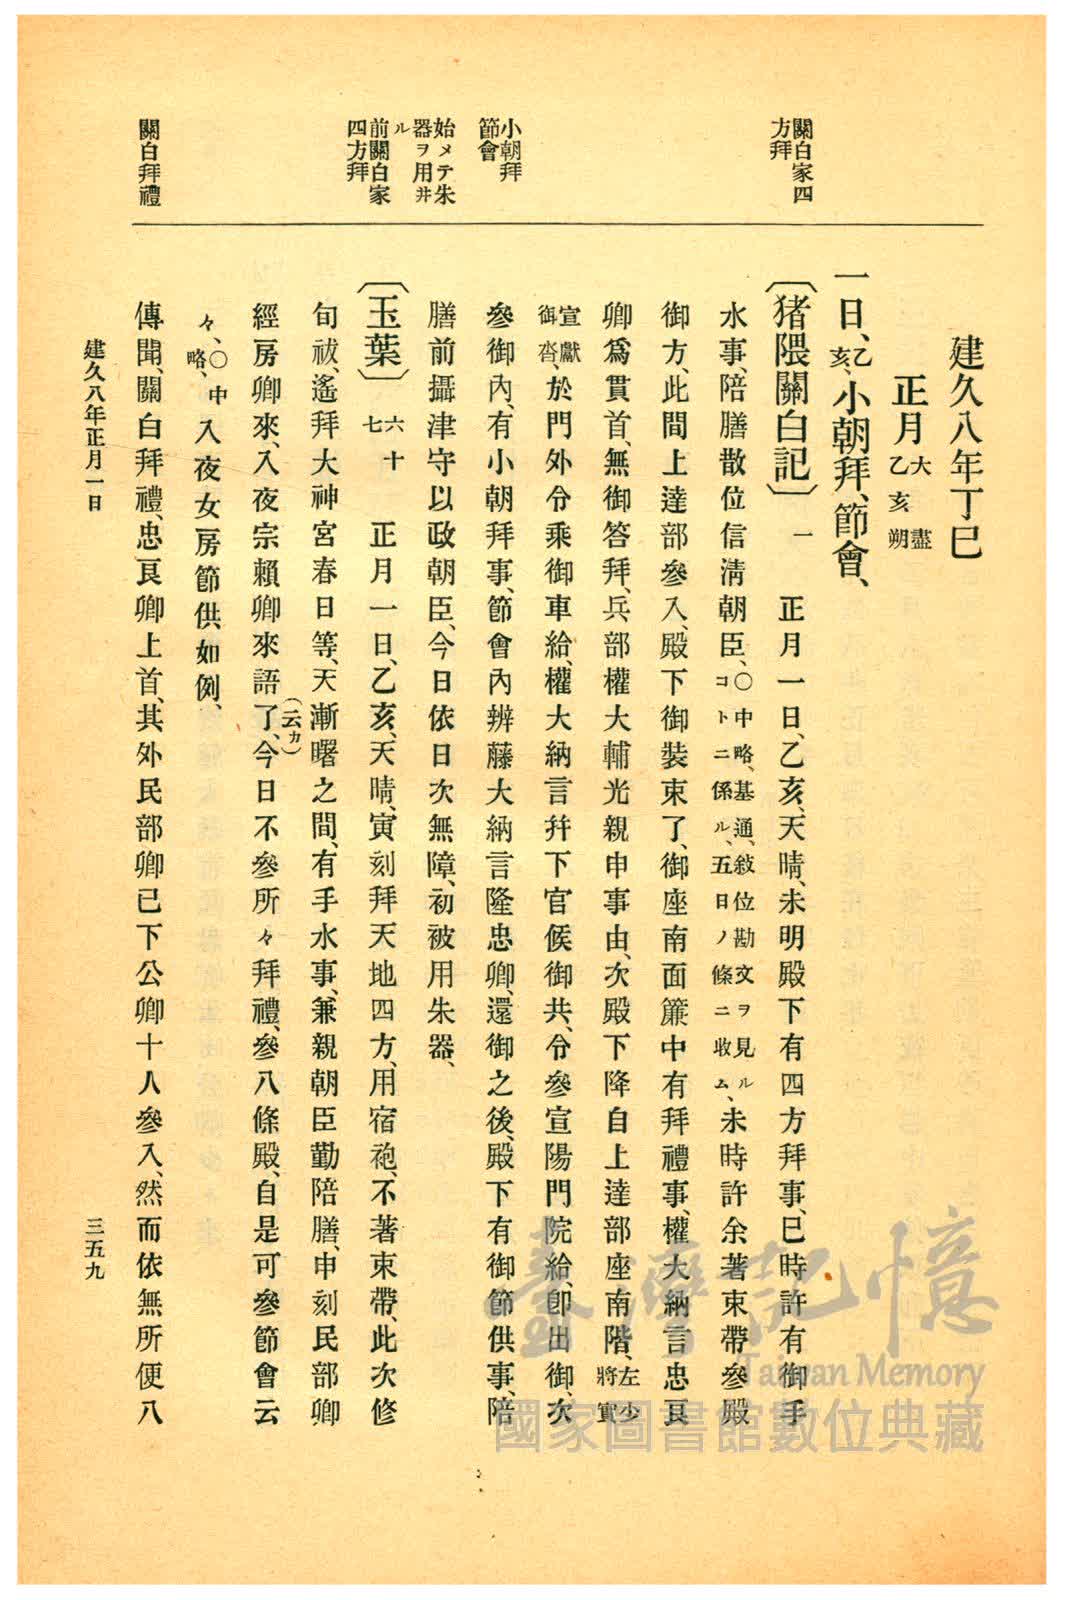 關白家四
方拜
小朝拜
節會
始メテ朱
器ヲ用井
ル
前關白家
四方拜
關白拜禮
建久八年丁巳
正月大盡
乙亥朔
一日、乙亥、小朝拜、節會、
〔猪隈關白記〕一 正月一日、乙亥、天晴、未明殿下有四方拜事、巳時許有御手
水事、陪膳散位信淸朝臣、〇中略、基通、敍位勘文ヲ見ルコトニ係ル、五日ノ條ニ收ム、未時許余著束帶參殿
御方、此間上達部參入、殿下御裝束了、御座南面簾中有拜禮事、權大納言忠良
卿爲貫首、無御答拜、兵部權大輔光親申事由、次殿下降自上達部座南階、左少將實
宣獻御沓、於門外令乘御車給、權大納言幷下官候御共、令參宣陽門院給、卽出御、次
參御內、有小朝拜事、節會內辨藤大納言隆忠卿、還御之後、殿下有御節供事、陪
膳前攝津守以政朝臣、今日依日次無障、初被用朱器、
〔玉葉〕六十七 正月一日、乙亥、天晴、寅刻拜天地四方、用宿袍、不著束帶、此次修
旬祓、遙拜大神宮春日等、天漸曙之間、有手水事、兼親朝臣勤陪膳、申刻民部卿
經房卿來、入夜宗賴卿來語了、(云カ)今日不參所々拜禮、參八條殿、自是可參節會云
々、〇中略、入夜女房節供、如例、
傳聞、關白拜禮、忠良卿上首、其外民部卿已下公卿十人參入、然而依無所便、八
建久八年正月一日
三五九
臺灣記憶
Taiwan Memory
國家圖書館數位典藏